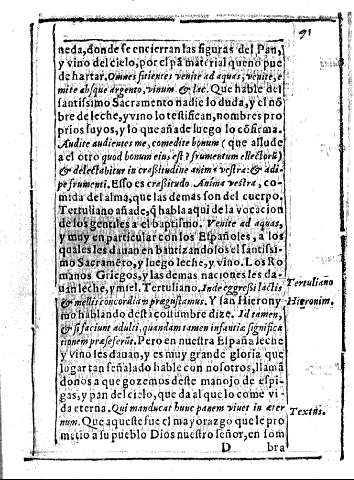 91
neda, donde se encierran las figuras del Pan,
y vino del cielo, por el pã material que no pue
de hartar. Omnes sitientes venite ad aquas, venite, e
mite absque argento, vinum & lac. Que hable del
santissimo Sacramento nadie lo duda, y el nõ
bre de leche, y vino lo testifican, nombres pro
prios suyos, y lo que añade luego lo cõfirma.
Audite audientes me, comedite bonum (que alude
a el otro quod bonum eius, est? frumentum electorũ)
& delectabitur in crassitudine anima vestra: & adi-
pe frumenti. Esso es crassitudo. Anima vestra, co-
mida del alma, que las demas son del cuerpo.
Tertuliano añade, q̃ habla aqui de la vocacion
de los gentiles a el baptismo. Venite ad aquas,
y muy en particular con los Españoles, a los
quales les dauan en bautizandolos el santissi-
mo Sacramẽto, y luego leche, y vino. Los Ro
manos Griegos, y las demas naciones les da-
uan leche, y miel. Tertuliano, Inde eggressi lactis
Tertuliano
& mellis concordiam prægustamus. Y san Hierony
Hieronim.
mo hablando desta costumbre dize. Id tamen,
& si faciunt adulti, quandam tamen infantiæ significa
tionem præseferũt. Pero en nuestra España leche
y vino les dauan, y es muy grande gloria que
lugar tan señalado hable con nosotros, llamã
donos a que gozemos deste manojo de espi-
gas, y pan del cielo, que da al que lo come vi-
da eterna. Qui manducat hunc panem viuet in æter
Textus.
num. Que aqueste fue el mayorazgo que le pro
metio a su pueblo Dios nuestro señor, en som
D bra